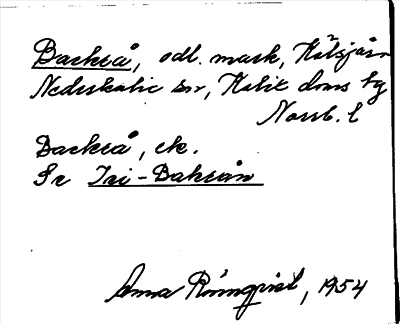 Backså, odl. mark, Hålsjön
Nederkalix sn, Kalix doms tg
Norrb. l
Backså, ek.
Se Tri-Baksån
Anna Rönnqvist, 1954